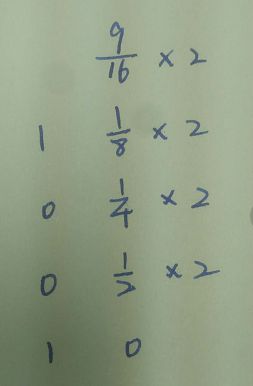 9/16 × 2
1 1/8 × 2
0 1/4 × 2
0 1/2 × 2
1 0